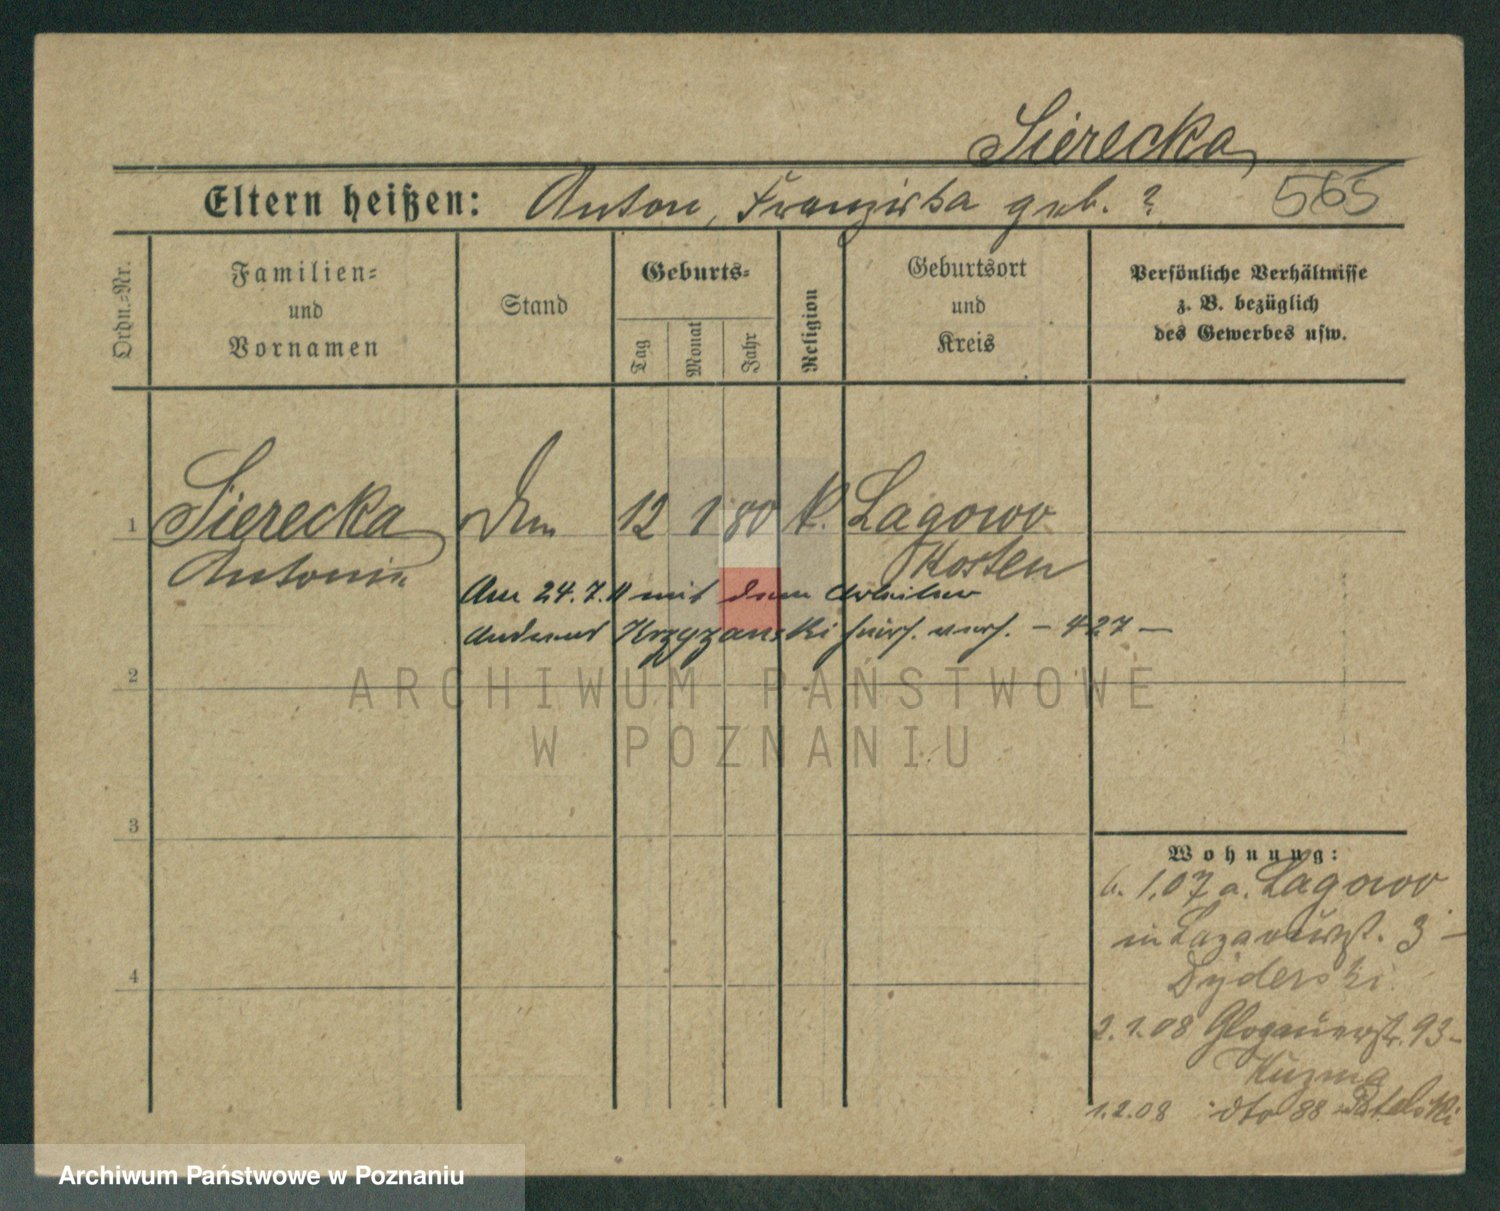 Sierecka
Eltern heißen: Anton, Franziska geb. ? 565
Ordn.-Nr.
Familien-
und
Vornamen
Stand
Geburts-
Tag
Monat
Jahr
Religion
Geburtsort
und
Kreis
Persönliche Verhältnisse
z. B. bezüglich
des Gewerbes usw.
1 Sierecka 12 1 80 k. Lagowo
Antonie Kosten
Am 24.7.11 mit dem Arbeiter
Andreas Krzyzanski hier verh. - 427 -
2
ARCHIWUM PAŃSTWOWE
W POZNANIU
3
Wohnung:
6. 1.07 a. Lagowo
in Lazarusst. 3 -
Dyderski
4
2.1.08 Glogauerstr. 93 -
Kuzma
1.2.08 dto 88
Archiwum Państwowe w Poznaniu